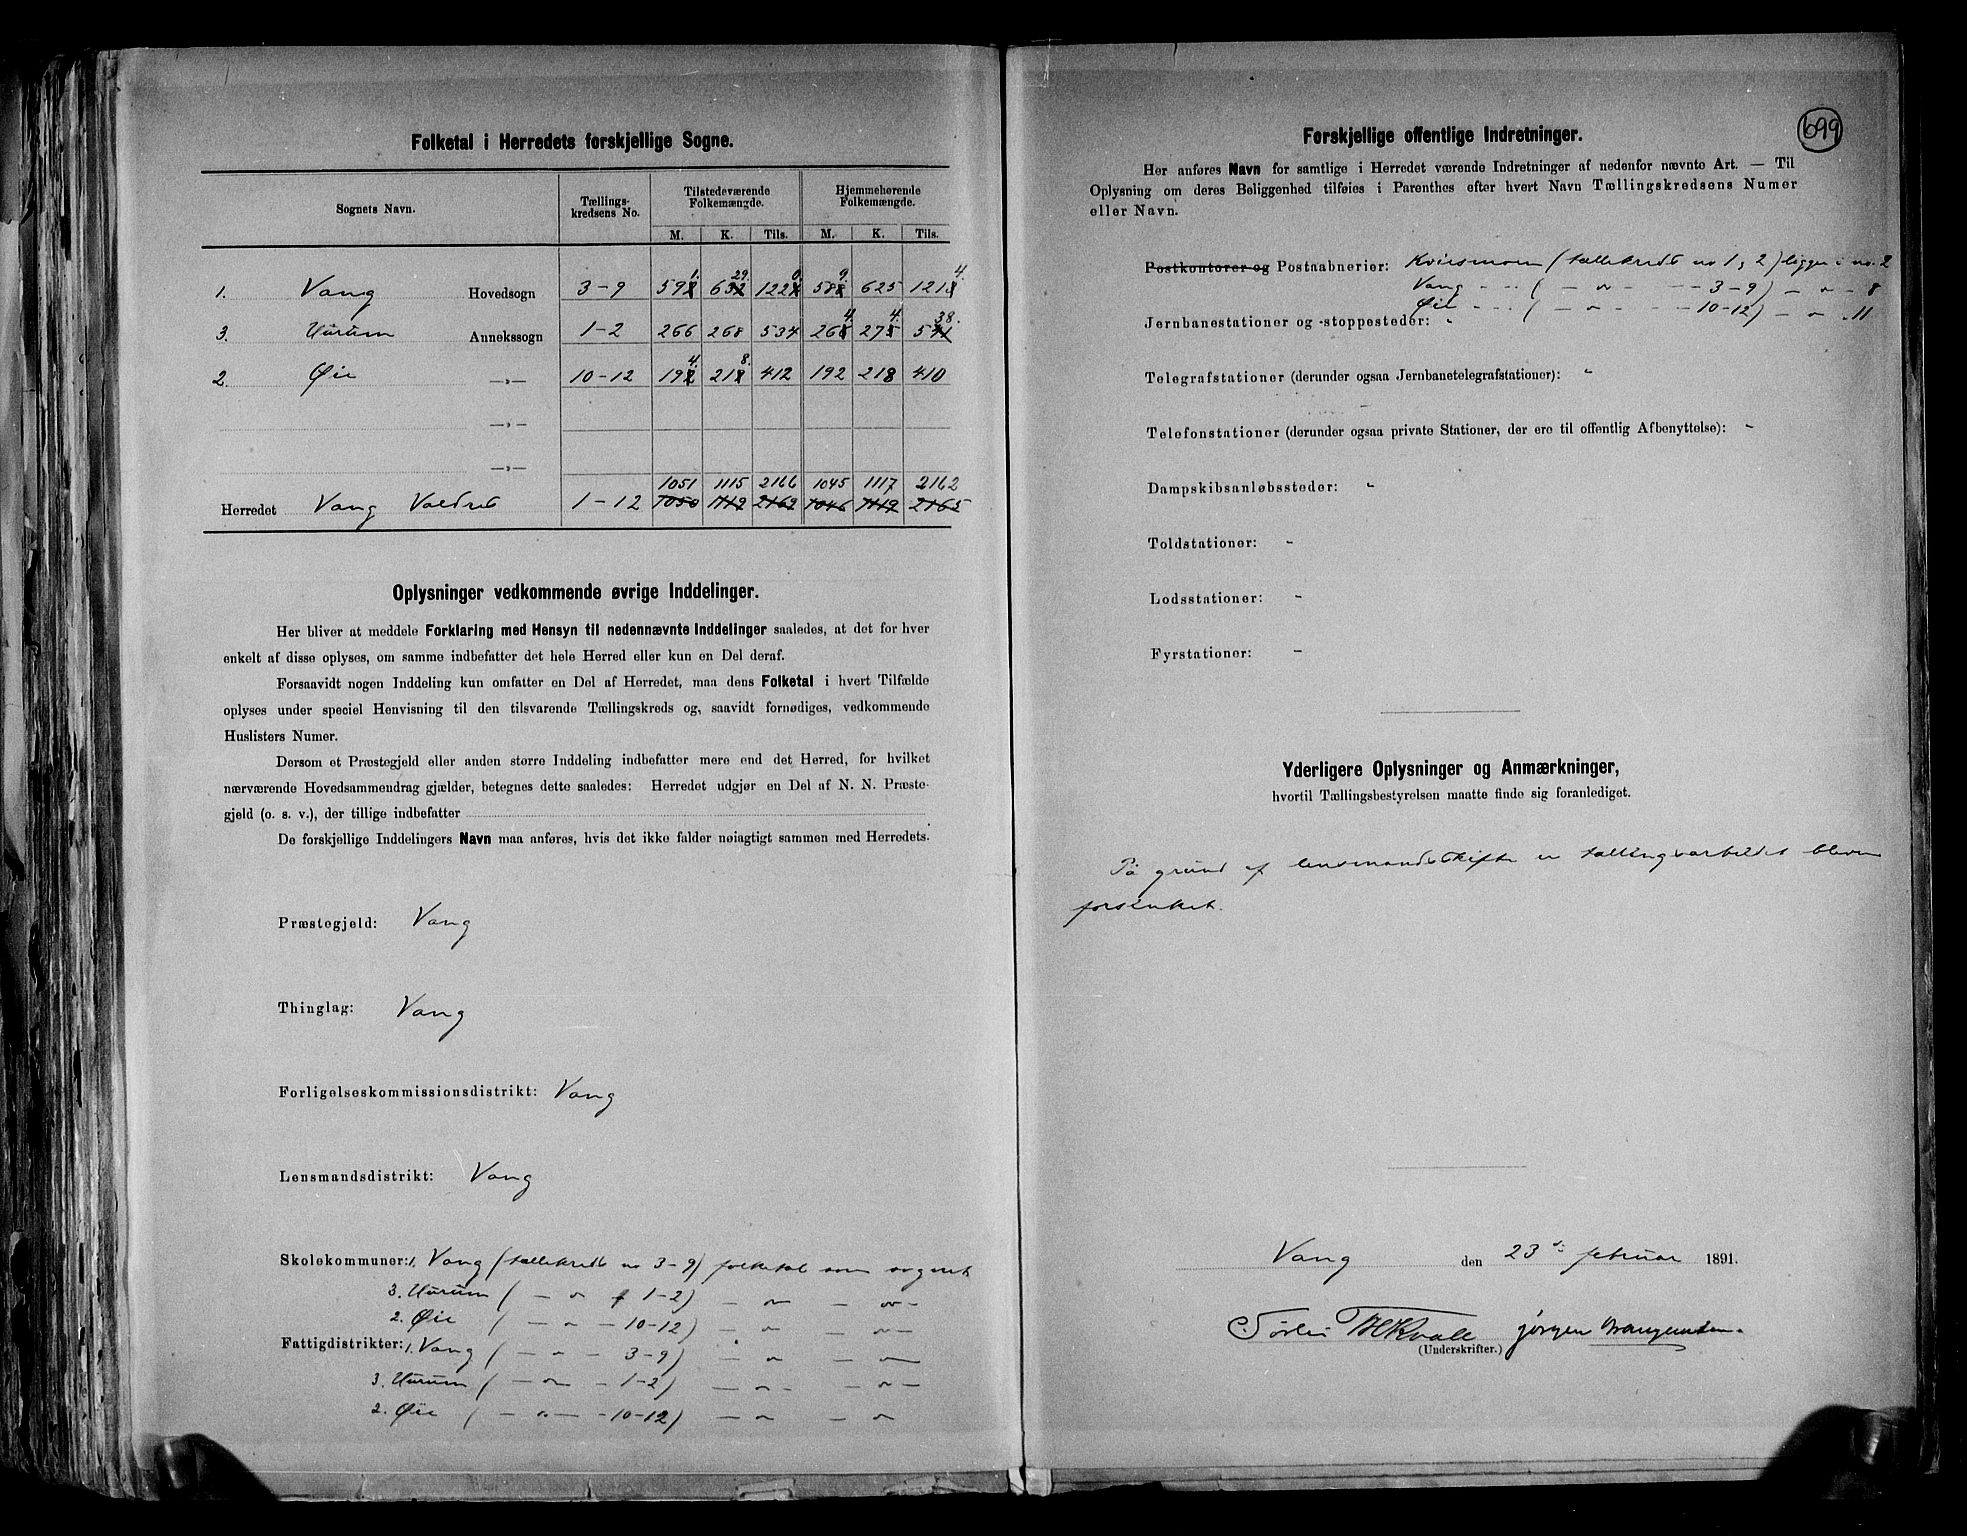 Folketal i Herredets forskjellige Sogne.
Sognets Navn. Tællings-kredsens No. Tilstedeværende Folkemængde. Hjemmehørende Folkemængde.
M. K. Tils. M. K. Tils.
1. Vang Hovedsogn 3-9 591 629 1220 589 625 1214
3. Hurum Annekssogn 1-2 266 268 534 264 274 538
2. Øie —„— 10-12 194 218 412 192 218 410
—„—
—„—
1051 1115 2166 1045 1117 2162
Herredet Vang Valdres 1-12 1050 1112 2162 1046 1119 2165
Oplysninger vedkommende øvrige Inddelinger.
Her bliver at meddele Forklaring med Hensyn til nedennævnte Inddelinger saaledes, at det for hver
enkelt af disse oplyses, om samme indbefatter det hele Herred eller kun en Del deraf.
Forsaavidt nogen Inddeling kun omfatter en Del af Herredet, maa dens Folketal i hvert Tilfælde
oplyses under speciel Henvisning til den tilsvarende Tællingskreds og, saavidt fornødiges, vedkommende
Huslisters Numer.
Dersom et Præstegjeld eller anden større Inddeling indbefatter mere end det Herred, for hvilket
nærværende Hovedsammendrag gjælder, betegnes dette saaledes: Herredet udgjør en Del af N. N. Præste-
gjeld (o. s. v.), der tillige indbefatter
De forskjellige Inddelingers Navn maa anføres, hvis det ikke falder nøiagtigt sammen med Herredets.
Præstegjeld: Vang
Thinglag: Vang
Forligelseskommissionsdistrikt: Vang
Lensmandsdistrikt: Vang
Skolekommuner: 1. Vang (tællekreds no 3-9) folketal som sognet
3. Hurum ( — " — 1-2) — " — — " —
2. Øie ( — " — 10-12) — " — — " —
Fattigdistrikter: 1. Vang ( — " — 3-9) — " — — " —
3. Hurum ( — " — 1-2) — " — — " —
2. Øie ( — " — 10-12) — " — — "
699
Forskjellige offentlige Indretninger.
Her anføres Navn for samtlige i Herredet værende Indretninger af nedenfor nævnte Art. — Til
Oplysning om deres Beliggenhed tilføies i Parenthes efter hvert Navn Tællingskredsens Numer
eller Navn.
Postkontorer og Postaabnerier: Kvismoen (tællekreds no 1, 2) ligger i no. 2
Vang - - ( — " — - 3-9) — " — 8
Øie - - ( — " — - 10-12) — " - 11
Jernbanestationer og -stoppesteder: "
Telegrafstationer (derunder ogsaa Jernbanetelegrafstationer): "
Telefonstationer (derunder ogsaa private Stationer, der ere til offentlig Afbenyttelse): -
Dampskibsanløbssteder: "
Toldstationer: -
Lodsstationer: -
Fyrstationer: -
Yderligere Oplysninger og Anmærkninger,
hvortil Tællingsbestyrelsen maatte finde sig foranlediget.
På grund af lensmandsskifte er tællingsarbeidet bleven
forsinket.
Vang den 23de februar 1891.
T H Kvale Jørgen
(Underskrifter.)